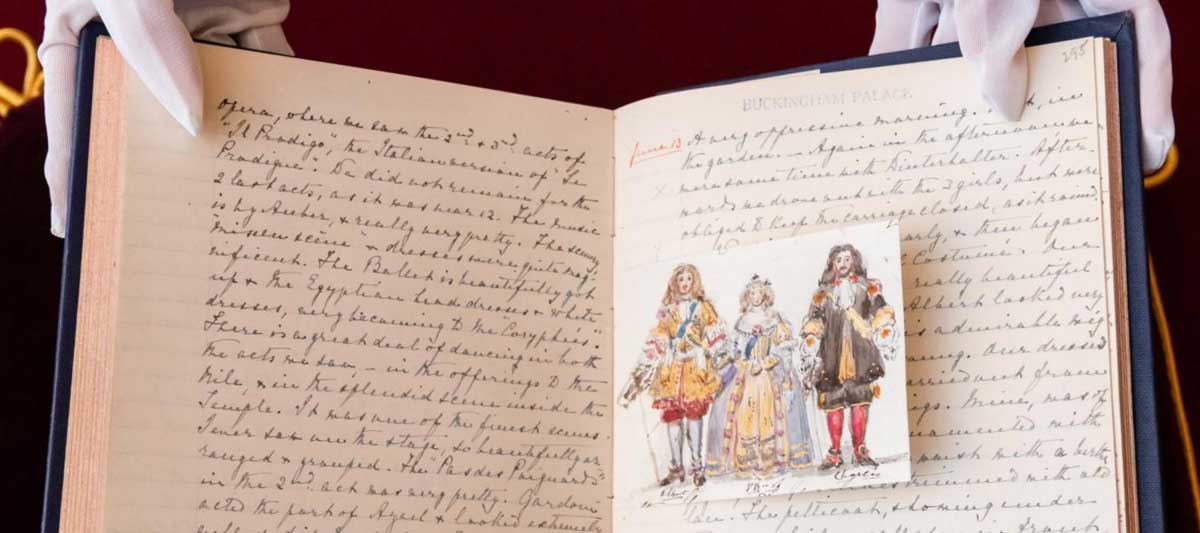 opera, where we saw the 2nd & 3rd acts of
"Il Prodigo", the Italian version of "Le
Prodigue". We did not remain for the
2 last acts, as it was near 12. The music
is by Auber, & really very pretty. The scenery,
"mise en scène" & dresses were quite mag-
nificent. The Ballet is beautifully got
up & the Egyptian head dresses & white
dresses, very becoming to the Coryphées.
There is a great deal of dancing in both
the acts we saw, — in the offerings to the
Nile, & in the splendid scene inside the
Temple. It was one of the finest scenes
I ever saw on the stage, so beautifully ar-
ranged & grouped. The "Pas des Poignards"
in the 2nd act was very pretty. Gardoni
acted the part of Azael & looked extremely
295
BUCKINGHAM PALACE
June 13
A very oppressive morning. in
the garden. — Again in the afternoon we
were some time with Winterhalter. After-
wards we drove out with the 3 girls, but were
obliged to keep the carriage closed, as it rained
early, & then began
Costumé. Our
really beautiful
Albert looked very
admirable wig
Our dresses
carried out from
Mine, was of
ornamented with
waist with a
trimmed with old
lace. The petticoat, showing under
Charles